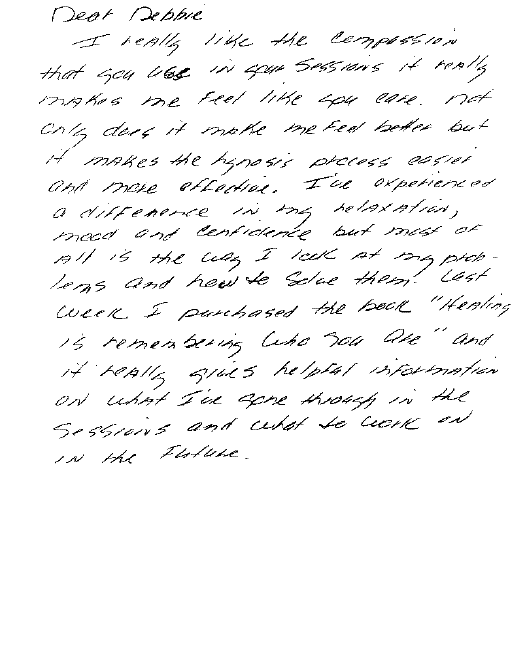 Dear Debbie
I really like the compassion
that you use in your Sessions it really
makes me feel like you care. not
only does it make me feel better but
it makes the hypnosis process easier
and more effective. I've experienced
a difference in my relaxation,
mood and confidence but most of
all is the way I look at my prob-
lems and how to solve them! Last
week I purchased the book "Healing
is remembering Who You Are" and
it really gives helpful information
on what I've gone through in the
Sessions and what to work on
in the Future.